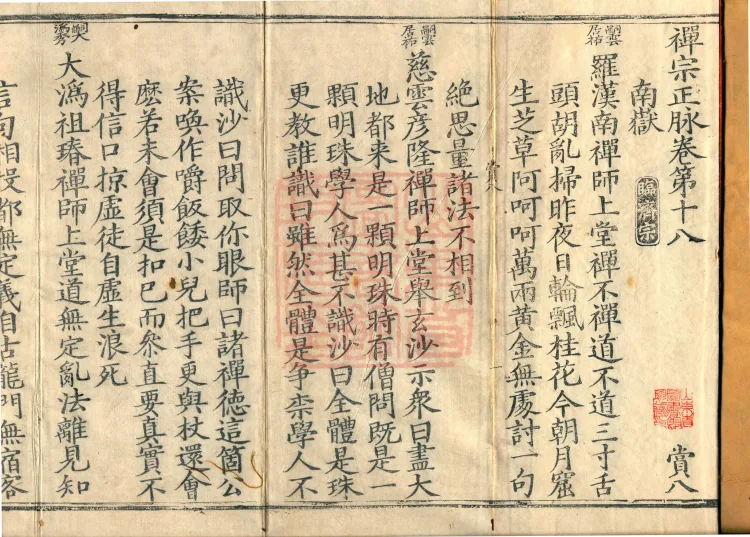 禪宗正脉卷第十八
賞八
南嶽
臨濟宗
嗣雲居祐
羅漢南禪師上堂禪不禪道不道三寸舌
頭胡亂掃昨夜日輪飄桂花今朝月窟
生芝草阿呵呵萬兩黄金無處討一句
賞八
絶思量諸法不相到
嗣雲居祐
慈雲彦隆禪師上堂舉玄沙示衆曰盡大
地都来是一顆明珠時有僧問既是一
顆明珠學人爲甚不識沙曰全體是珠
更教誰識曰雖然全體是争柰學人不
識沙曰問取你眼師曰諸禪德這箇公
案喚作嚼飯餧小兒把手更與杖還會
麽若未會須是扣已而叅直要真實不
得信口掠虛徒自虛生浪死
嗣大
大潙祖瑃禪師上堂道無定亂法離見知
言句相投都無定義自古龍門無宿客